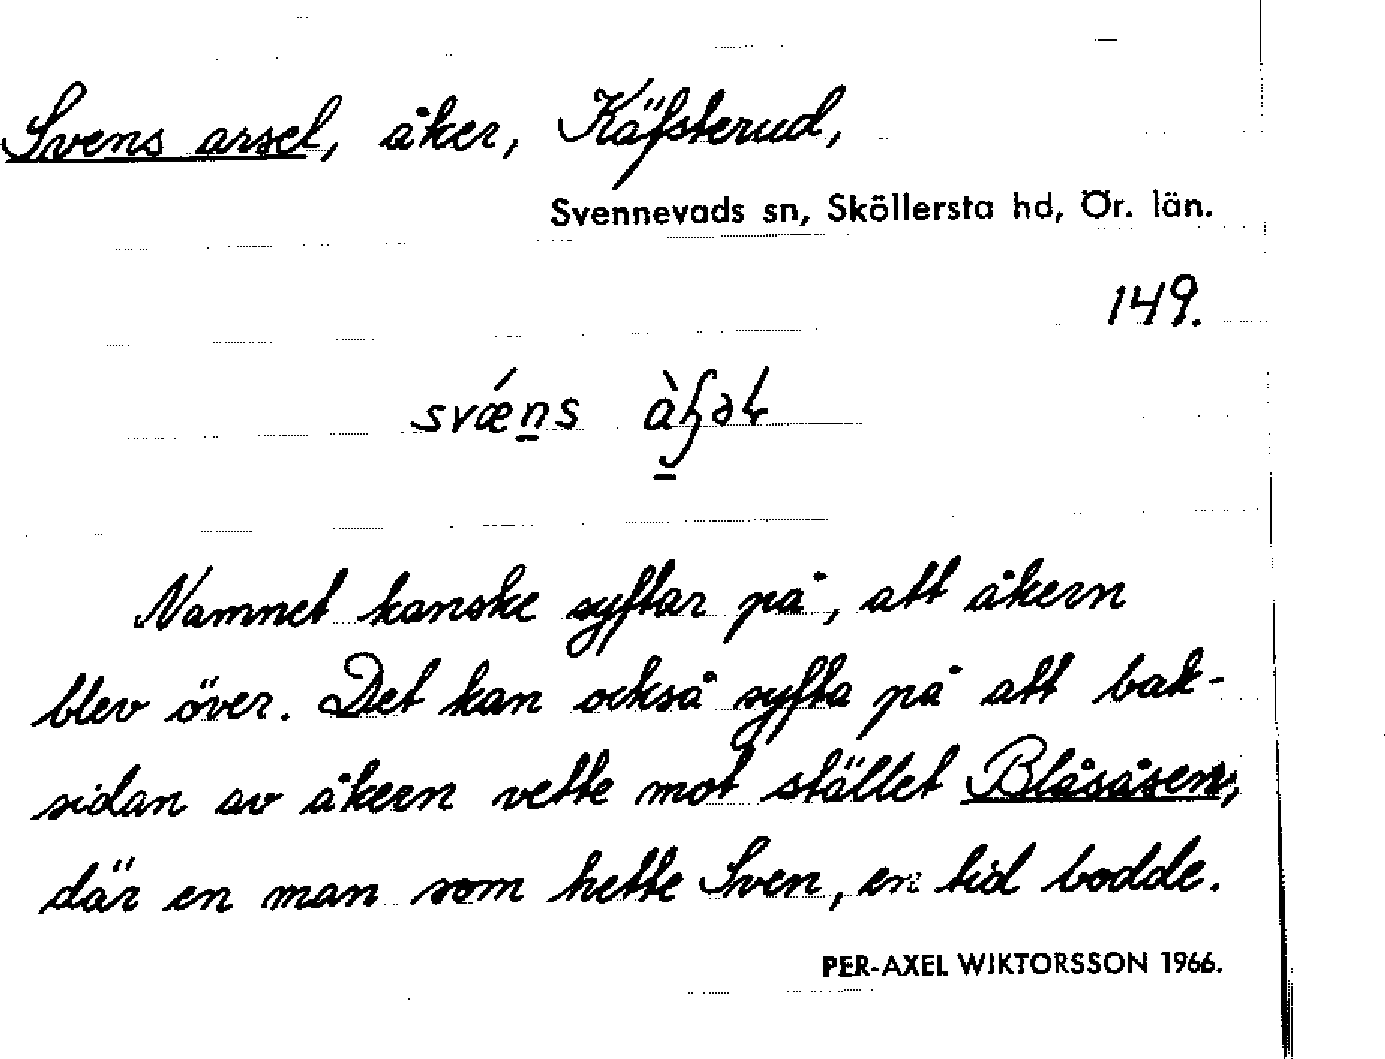 Svens arsel, åker, Käfsterud,
Svennevads sn, Sköllersta hd, Ör. län.
149.
svǽn̲s
Namnet kanske syftar på, att åkern
blev över. Det kan också syfta på att bak-
sidan av åkern vette mot stället Blåsåsen,
där en man som hette Sven, en tid bodde.
PER-AXEL WIKTORSSON 1966.